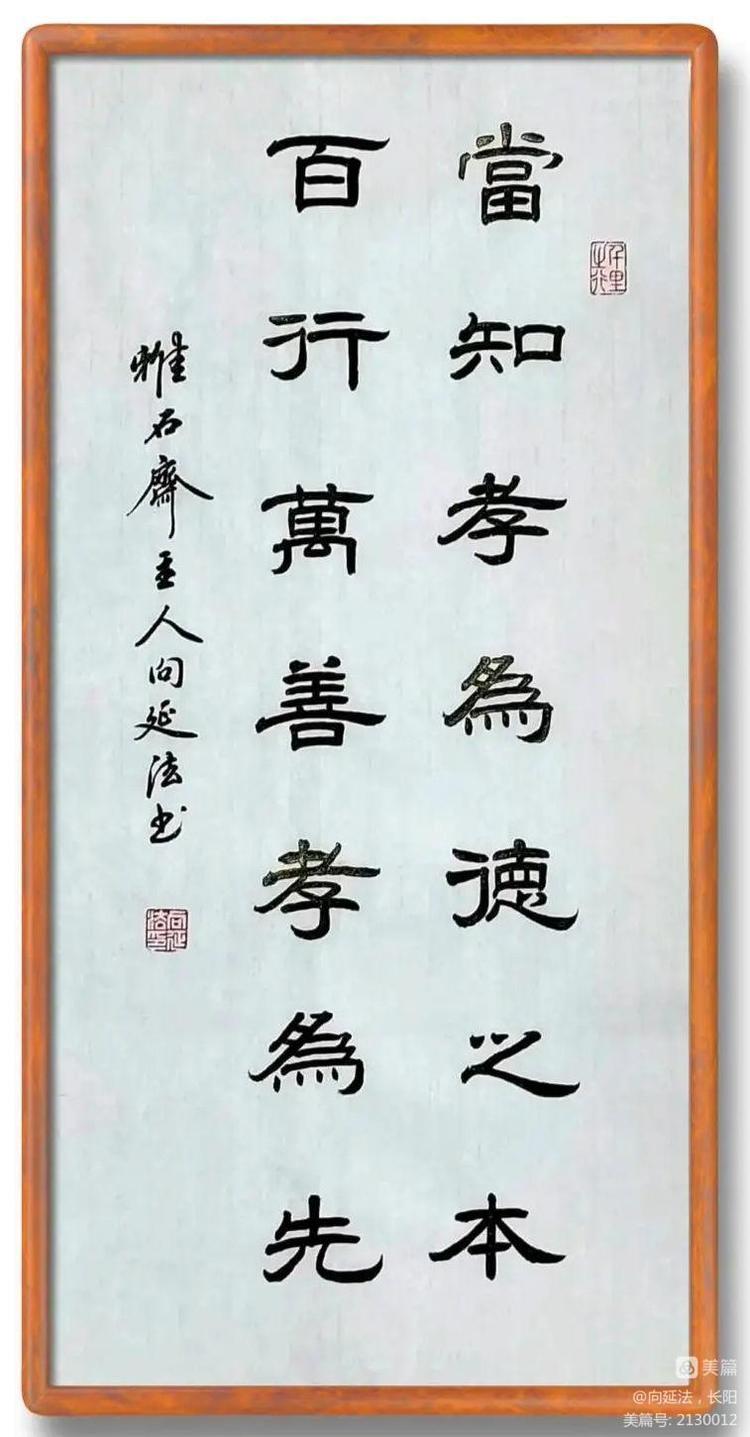 當知孝為德之本
千里之行
百行萬善孝為先
雅石齋主人向延法书
向延法印
美篇
@向延法，长阳
美篇号: 2130012